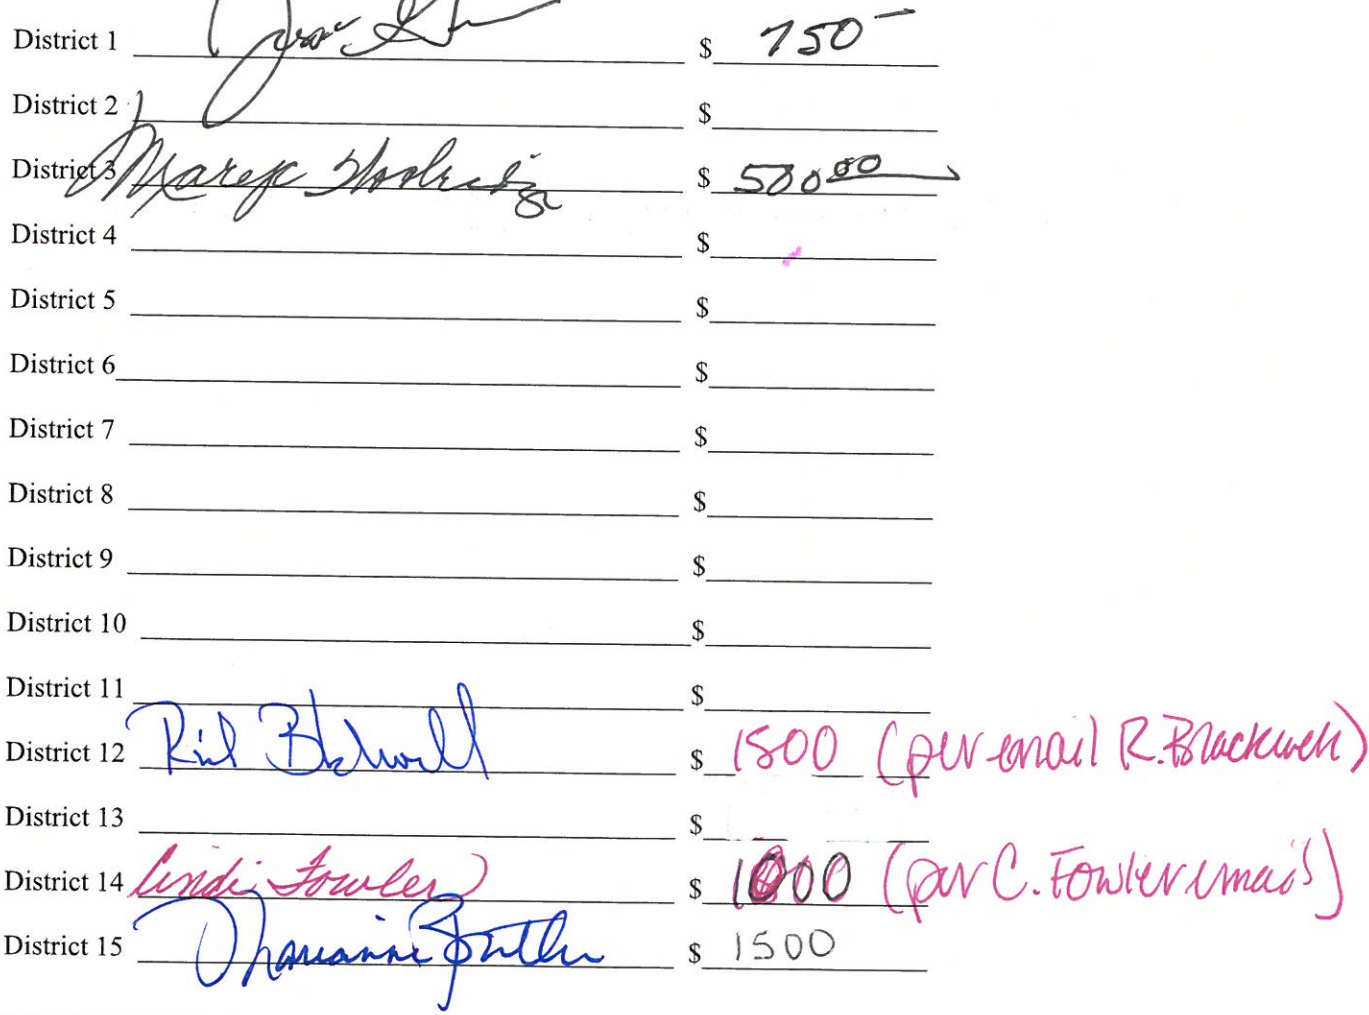 District 1 $ 750-
District 2 $
District 3 $ 500 00
District 4 $
District 5 $
District 6 $
District 7 $
District 8 $
District 9 $
District 10 $
District 11 $
District 12 $ 1500 (per email R. Blackwell)
District 13 $
District 14 Cindi Fowler $ 1000 (per C. Fowler email)
District 15 Marianne Butler $ 1500